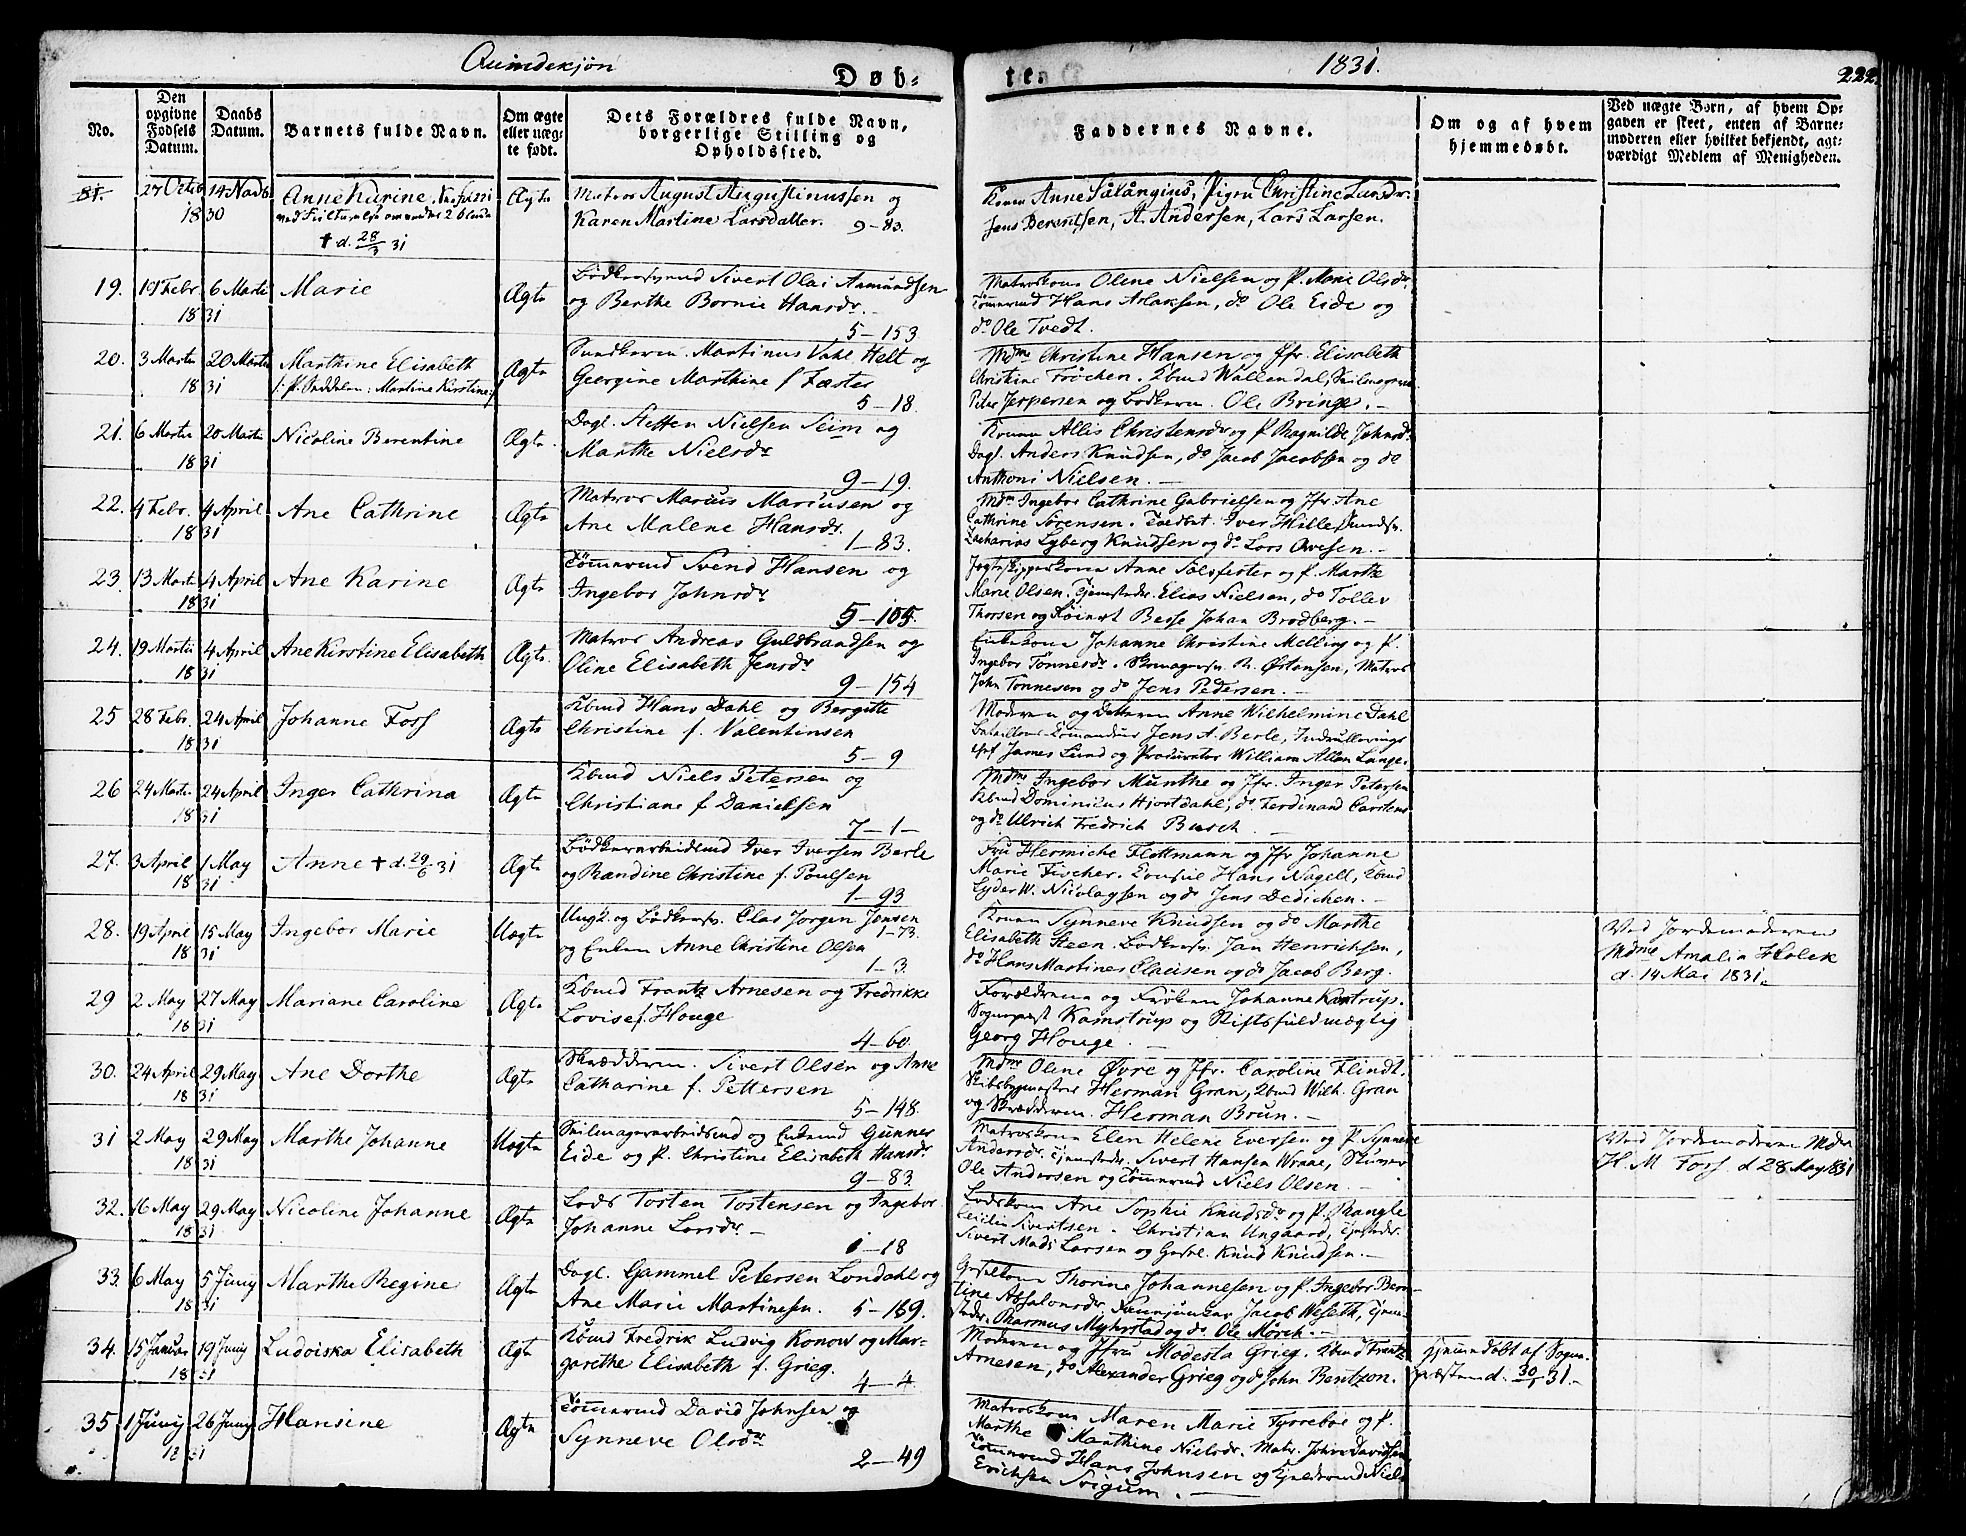 Quindekjøn
Døb-
te.
1831.
222.
No.
Den opgivne Fødsels Datum.
Daabs Datum.
Barnets fulde Navn.
Om ægte eller uægte født.
Dets Forældres fulde Navn, borgerlige Stilling og Opholdssted.
Faddernes Navne.
Om og af hvem hjemmedøbt.
Ved uægte Børn, af hvem Opgaven er skeet, enten af Barnemoderen eller hvilket bekjendt, agtværdigt Medlem af Menigheden.
81. 27 Octb 14 Novb 1830 Anne Karine Ægte
† d. 28/3 31
Matros August Augustinussen og
Karen Martine Larsdatter. 9-83.
Konen Anne Pigen Christine Larsdr.
Jens Berentsen, A. Andersen, Lars Larsen.
19. 19 Febr. 6 Martii 1831 Marie Ægte
Sivert Olai Aamundsen
og Berthe Bornie Hansdr. 5-153
Matroskone Olene Nielsen og P. Marie Olsdr.
Tömmermd Hans Aslaksen, do Ole Eide og
do Ole Tvedt.
20. 3 Martii 20 Martii 1831 Marthine Elisabeth Ægte
Martine Kirstine
Martinus Vahl Helt og
Georgine Marthine f. Fæster 5-18.
Mdme Christine Hansen og Jfr. Elisabeth
Christine Fröchen. Kbmd Wallendal,
Peter Jespersen og Ole Bringe.-
21. 6 Martii 20 Martii 1831 Nicoline Berentine Ægte
Dagl. Steffen Nielsen Seim og
Marthe Nielsdr 9-19.
Konen Allis Christensdr og P. Ragnilde Johnsdr.
Dagl. Anders Knudsen, do Jacob Jacobsen og do
Anthoni Nielsen.-
22. 4 Febr. 4 April 1831 Ane Cathrine Ægte
Matros Marcus Marcusen og
Ane Malene Hansdr. 1-83.
Mdm Ingebor Cathrine Gabrielsen og Jfr Ane
Cathrine Sörensen. Iver Hille,
Zacharias Lyberg Knudsen og do Lars Ovesen.-
23. 13 Martii 4 April 1831 Ane Karine Ægte
Tömmermd Svend Hansen og
Ingebor Johnsdr 5-105.
Anne Salsfester og P. Marthe
Marie Olsen. Elias Nielsen, do Tollev
Thorsen og Johan Brodberg.-
24. 19 Martii 4 April 1831 Ane Kirstine Elisabeth Ægte
Matros Andreas Guldbrandsen og
Oline Elisabeth Jensdr 9-154
Johanne Christine Melling og P.
Ingebor Tonnesdr. Østensen, Matros
John Tonnesen og do Jens Pedersen.-
25 28 Febr. 24 April 1831 Johanne Foss Ægte
Kbmd Hans Dahl og Bergitte
Christine f. Valentinsen 5-9
Moderen og Datteren Anne Wilhelmine Dahl
Jens A. Berle, Indrullerings
James Lund og Procurator William Allan Lange.
26 24 Martii 24 April 1831 Inger Cathrina Ægte
Kbmd Niels Petersen og
Christiane f. Danielsen 7-1-
Mdme Ingebor Munthe og Jfr. Inger Petersen
Kbmd Dominicus Hjortdahl, do Ferdinand Carstens
og do Ulrich Fredrich Busch.-
27. 3 April 1 May 1831 Anne † d. 29/6 31 Ægte
Iver Iversen Berle
og Randine Christine f. Poulsen 1-93
Fru Hermiche Flottmann og Jfr Johanne
Marie Fischer. Consul Hans Nagell, Kbmd
Lyder W. Nicolaysen og do Jens Dedichen.-
28. 19 April 15 May 1831 Ingebor Marie Uægte
Ungk. og Clas Jörgen Jensen 1-73.
og Enken Anne Christine Olsen 1-3.
Konen Synneve Knudsen og do Marthe
Elisabeth Steen. Jan Henrichsen,
do Hans Martines Clausen og do Jacob Berg.
Ved Jordemoderen
Mdme Amalia Holck
d. 14 Mai 1831.
29 2 May 27 May 1831 Mariane Caroline Ægte
Kbmd Frantz Arnesen og Fredrikke
Lovise f. Houge 4-60.
Forældrene og Fröken Johanne Kamstrup.
Sognepræst Kamstrup og Stiftsfuldmægtig
Georg Houge.-
30. 24 April 29 May 1831 Ane Dorthe Ægte
Skrædderm. Sivert Olsen og Anne
Catharine f. Pettersen 5-148.
Mdme Olene Øvre og Jfr. Caroline Flindt.
Skibsbygmester Herman Gran, Kbmd Wilh. Gran
og Skrædderm. Herman Brun.-
31 2 May 29 May 1831 Marthe Johanne Uægte
Seilmagerarbeidsmd og Enkemd Gunner
Eide og P. Christine Elisabeth Hansdr 9-83.
Matroskone Elen Helene Eversen og P. Synneve
Andersdr. Sivert Hansen
Ole Andersen og Tömmermd Niels Olsen.-
Ved Jordemoderen Mdm
H. M Foss d 28 May 1831
32. 16 May 29 May 1831 Nicoline Johanne Ægte
Lods Tosten Tostensen og Ingebor
Johanne Larsdr.- 1-18
Lodskone Ane Sophie Knudsdr og P. Rangle
Cecilie Sivertsen. Christian Ungaard,
Sivert Mads Larsen og Knud Knudsen.-
33. 6 May 5 Junij 1831 Marthe Regine Ægte
Dagl. Gammel Petersen Londahl og
Ane Marie Martinesen. 5-169.
Thorine Johannesen og P. Ingebor Berntine
Absalonsdr. Jacob Weseth,
Rasmus Myhrstad og do Ole Mörch.-
34. 15 Januar 19 Junij 1831 Ludoiska Elisabeth Ægte
Kbmd Fredrik Ludvig Konow og Margarethe
Elisabeth f. Grieg. 4-4.
Moderen og Jfru Modesta Grieg. Kbmd Frantz
Arnesen, do Alexander Grieg og do John Bentzon.
Hjemmedöbt af Sognepræsten
d. 31.-
35 1 Junij 26 Junij 1831 Hansine Ægte
Tömmermd David Johnsen og
Synneve Olsdr 2-49
Matroskone Maren Marie Tyrreböe og P.
Marthe Marthine Nielsdr. Matr. Johs Davidsen
Tömmermd Hans Johnsen og Niels
Erichsen Svigum.-